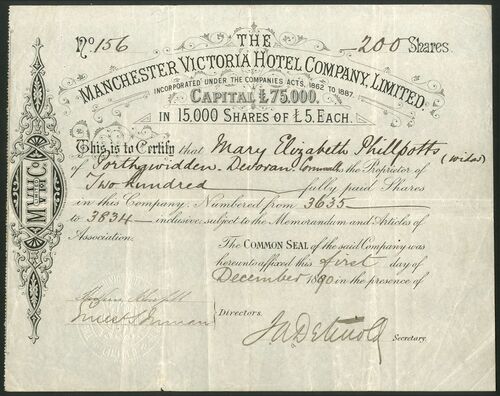 No. 156
THE
200 Shares.
MANCHESTER VICTORIA HOTEL COMPANY, LIMITED.
INCORPORATED UNDER THE COMPANIES ACTS, 1862 TO 1887.
CAPITAL £75,000.
IN 15,000 SHARES OF £5 EACH.
This is to Certify that Mary Elizabeth Phillpotts (widow)
of Porthgwidden, Devoran, Cornwall is the Proprietor of
Two hundred fully paid Shares
in this Company. Numbered from 3635
to 3834 inclusive, subject to the Memorandum and Articles of
Association.
The COMMON SEAL of the said Company was
hereunto affixed this first day of
December 1890 in the presence of
Directors.
Secretary.